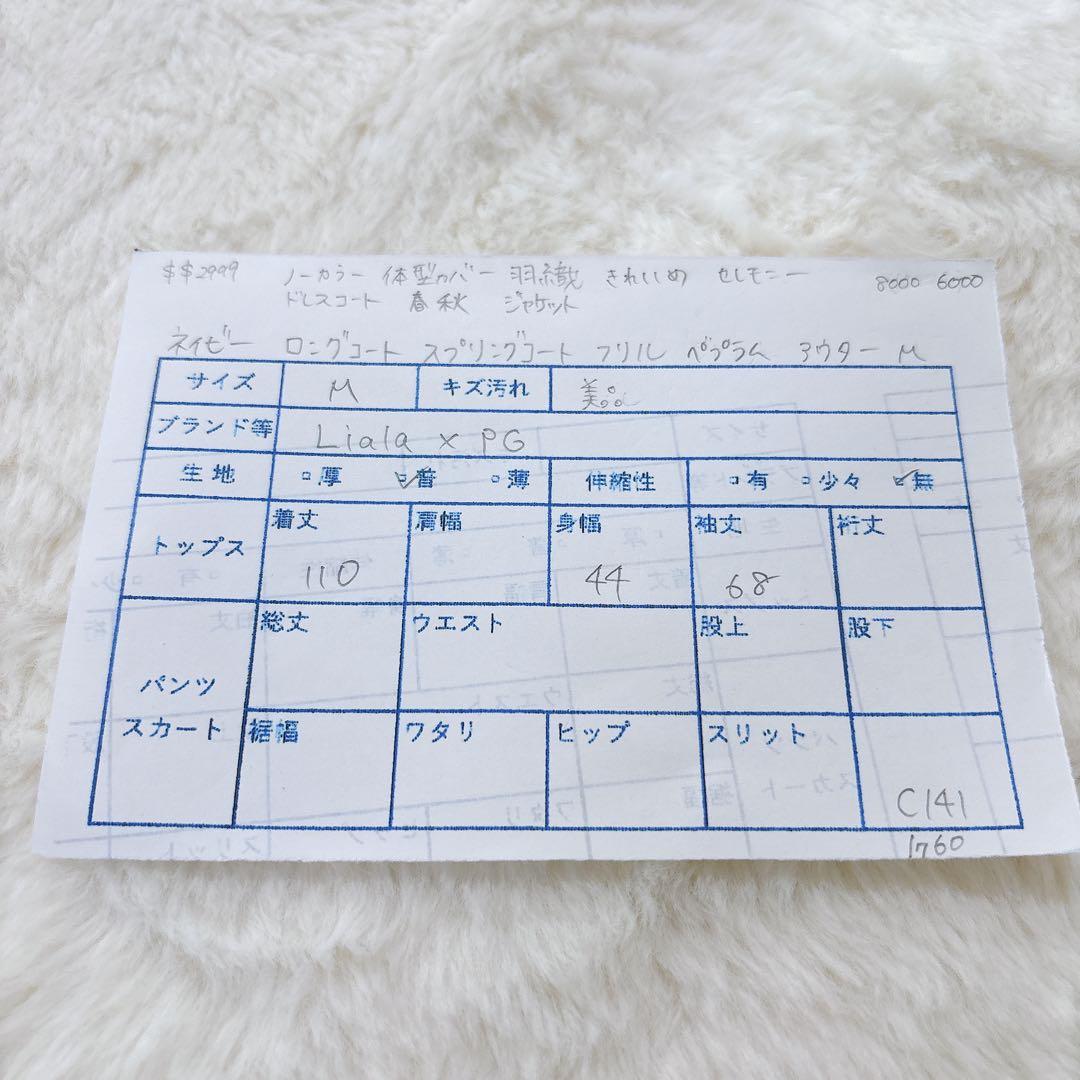 $$2999 ノーカラー 体型カバー 羽織 きれいめ セレモニー 8000 6000
ドレスコート 春秋 ジャケット
ネイビー ロングコート スプリングコート フリル ペプラム アウター M
サイズ M キズ汚れ 美品
ブランド等 Liala x PG
生地 □厚 ☑普 □薄 伸縮性 □有 □少々 ☑無
トップス 着丈 110 肩幅 身幅 44 袖丈 68 裄丈
パンツ スカート 総丈 ウエスト 股上 股下
裾幅 ワタリ ヒップ スリット C141
1760